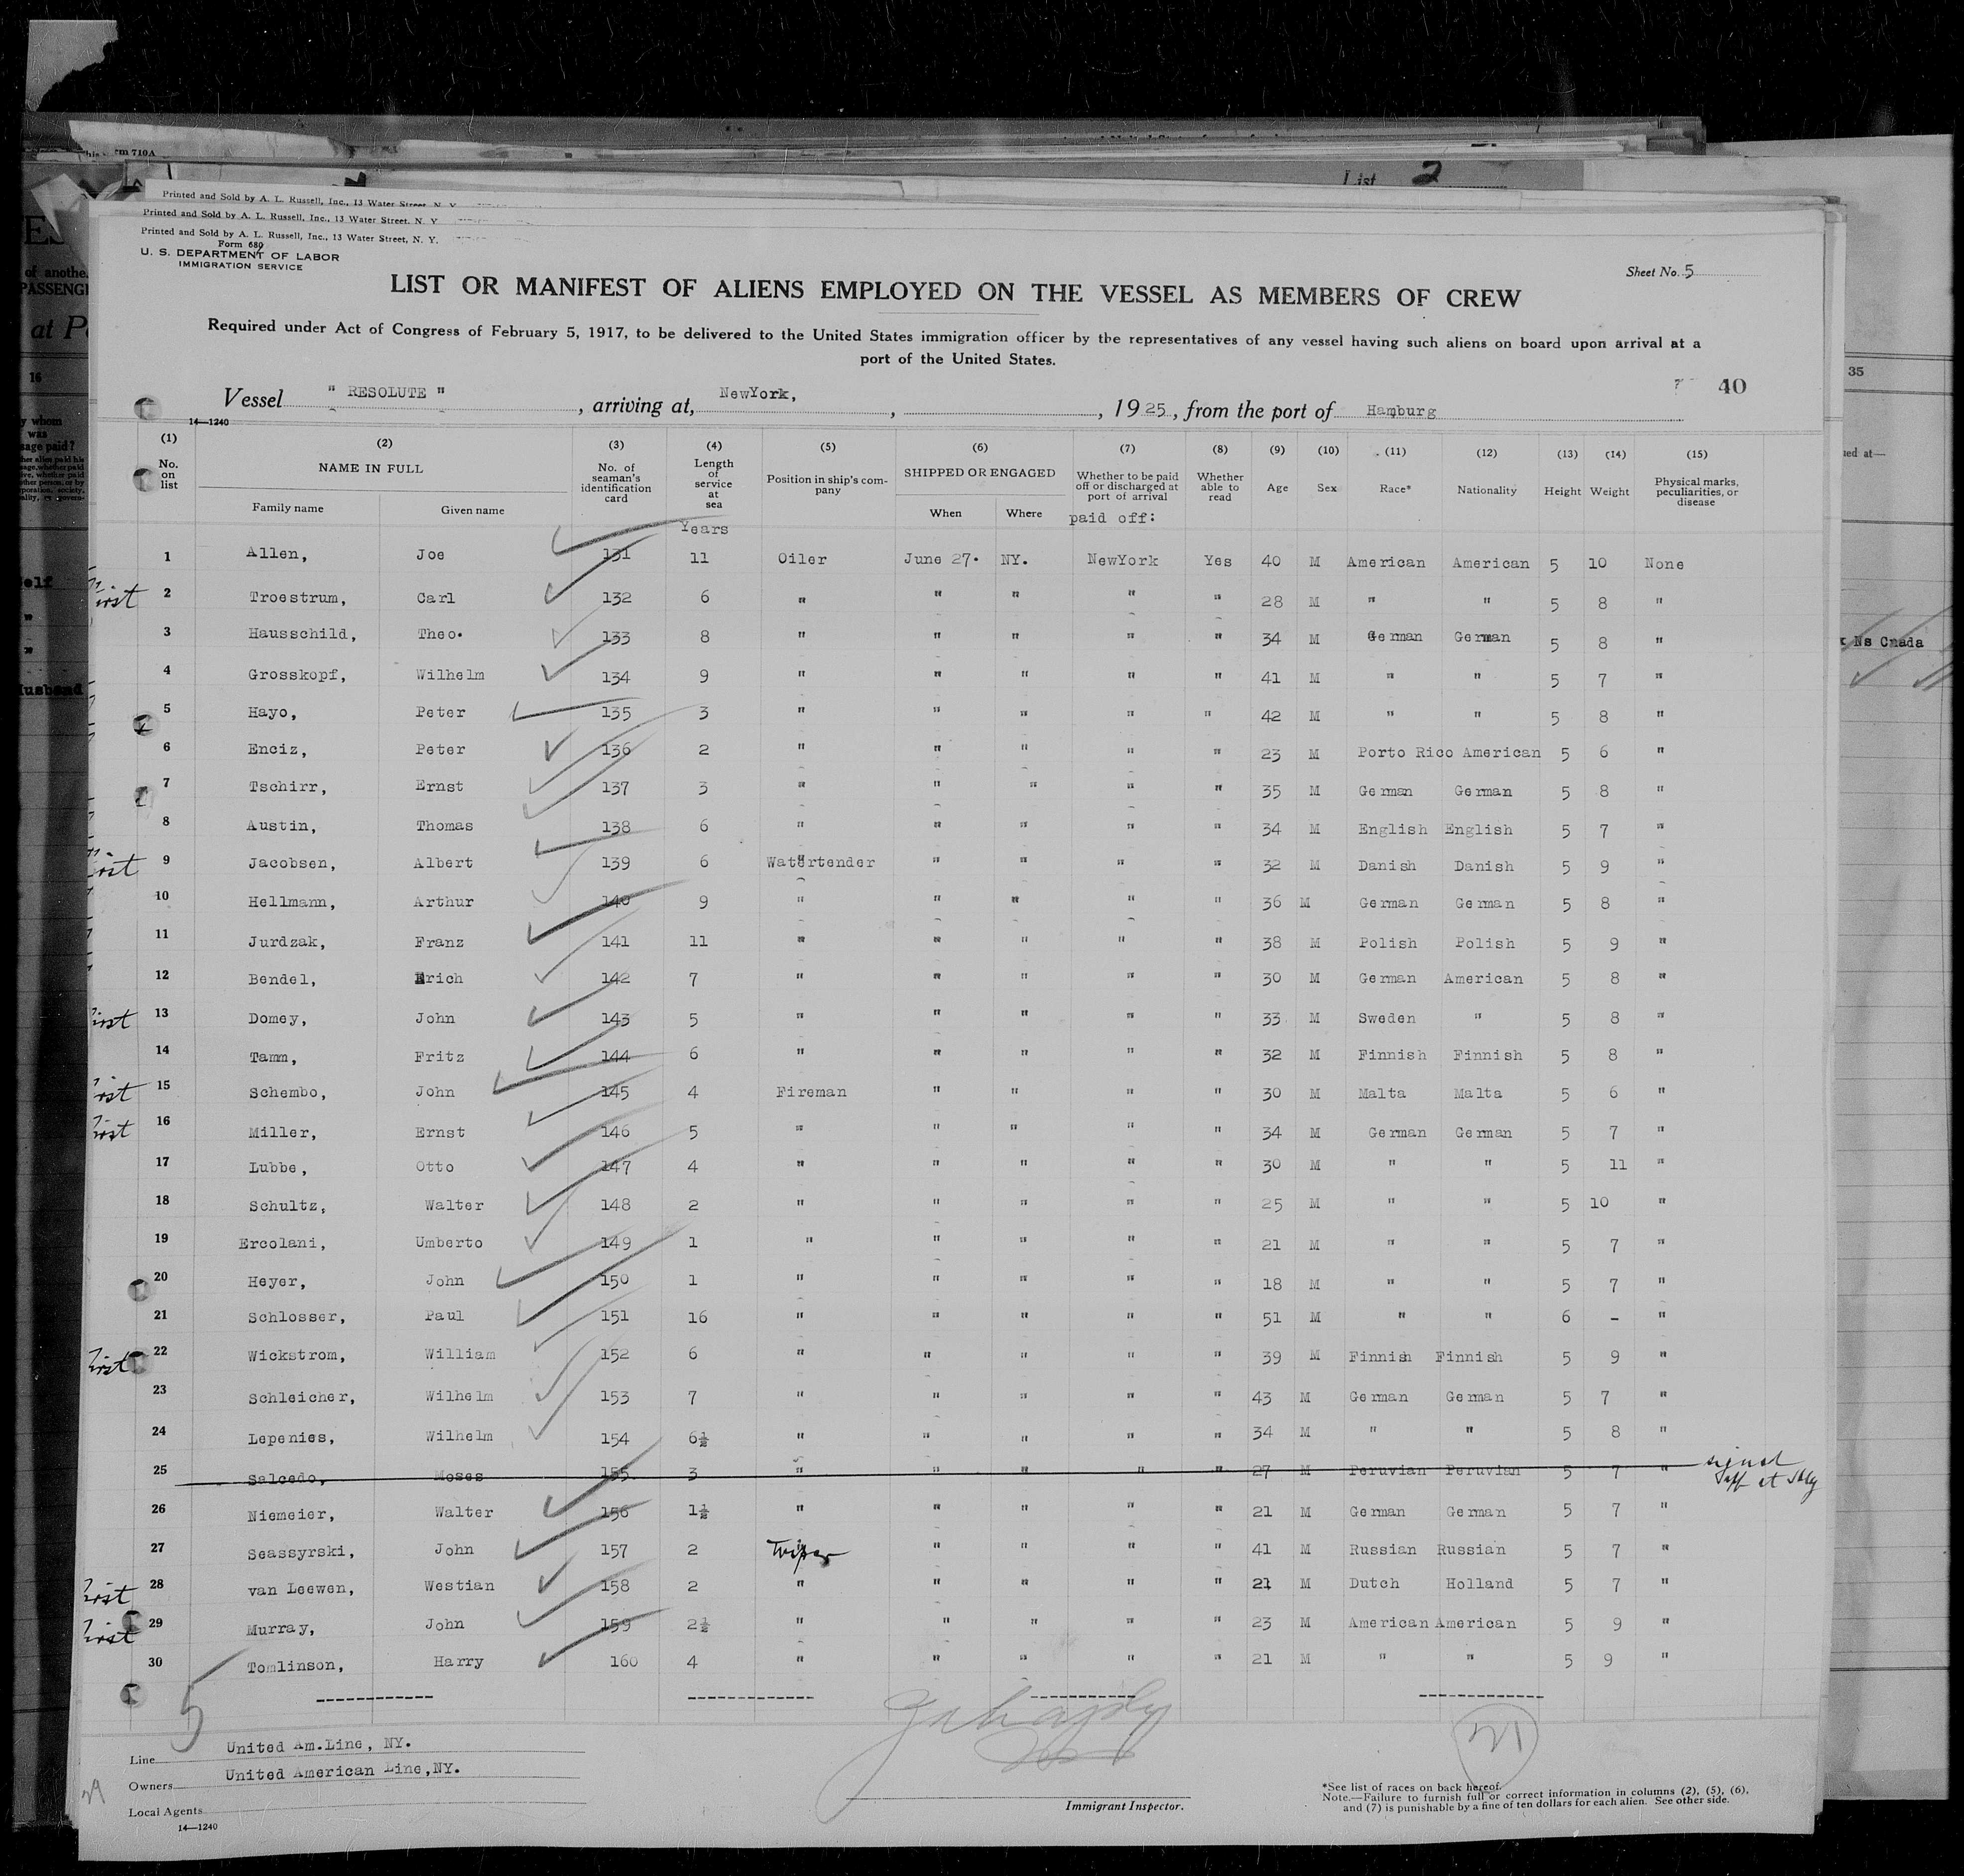 his Form 710A
List 2
Printed and Sold by A. L. Russell, Inc., 13 Water Street, N. Y.
Printed and Sold by A. L. Russell, Inc., 13 Water Street, N. Y.
Printed and Sold by A. L. Russell, Inc., 13 Water Street, N. Y.
Form 680
U. S. DEPARTMENT OF LABOR
IMMIGRATION SERVICE
Sheet No. 5
LIST OR MANIFEST OF ALIENS EMPLOYED ON THE VESSEL AS MEMBERS OF CREW
Required under Act of Congress of February 5, 1917, to be delivered to the United States immigration officer by the representatives of any vessel having such aliens on board upon arrival at a
port of the United States.
40
Vessel " RESOLUTE " , arriving at, NewYork, , , 1925, from the port of Hamburg
14—1240
(1) (2) (3) (4) (5) (6) (7) (8) (9) (10) (11) (12) (13) (14) (15)
No. on list NAME IN FULL Family name Given name No. of seaman's identification card Length of service at sea Position in ship's company SHIPPED OR ENGAGED When Where Whether to be paid off or discharged at port of arrival Whether able to read Age Sex Race* Nationality Height Weight Physical marks, peculiarities, or disease
Years paid off:
1 Allen, Joe 131 11 Oiler June 27. NY. NewYork Yes 40 M American American 5 10 None
First 2 Troestrum, Carl 132 6 " " " " " 28 M " " 5 8 "
3 Hausschild, Theo. 133 8 " " " " " 34 M German German 5 8 "
4 Grosskopf, Wilhelm 134 9 " " " " " 41 M " " 5 7 "
5 Hayo, Peter 135 3 " " " " " 42 M " " 5 8 "
6 Enciz, Peter 136 2 " " " " " 23 M Porto Rico American 5 6 "
7 Tschirr, Ernst 137 3 " " " " " 35 M German German 5 8 "
8 Austin, Thomas 138 6 " " " " " 34 M English English 5 7 "
First 9 Jacobsen, Albert 139 6 Watertender " " " " 32 M Danish Danish 5 9 "
10 Hellmann, Arthur 140 9 " " " " " 36 M German German 5 8 "
11 Jurdzak, Franz 141 11 " " " " " 38 M Polish Polish 5 9 "
12 Bendel, Erich 142 7 " " " " " 30 M German American 5 8 "
First 13 Domey, John 143 5 " " " " " 33 M Sweden " 5 8 "
14 Tamm, Fritz 144 6 " " " " " 32 M Finnish Finnish 5 8 "
First 15 Schembo, John 145 4 Fireman " " " " 30 M Malta Malta 5 6 "
First 16 Miller, Ernst 146 5 " " " " " 34 M German German 5 7 "
17 Lubbe, Otto 147 4 " " " " " 30 M " " 5 11 "
18 Schultz, Walter 148 2 " " " " " 25 M " " 5 10 "
19 Ercolani, Umberto 149 1 " " " " " 21 M " " 5 7 "
20 Heyer, John 150 1 " " " " " 18 M " " 5 7 "
21 Schlosser, Paul 151 16 " " " " " 51 M " " 6 - "
First 22 Wickstrom, William 152 6 " " " " " 39 M Finnish Finnish 5 9 "
23 Schleicher, Wilhelm 153 7 " " " " " 43 M German German 5 7 "
24 Lepenies, Wilhelm 154 6½ " " " " " 34 M " " 5 8 "
25 Salcedo, Moses 155 3 " " " " " 27 M Peruvian Peruvian 5 7 " signed off at Hbg
26 Niemeier, Walter 156 1½ " " " " " 21 M German German 5 7 "
27 Seassyrski, John 157 2 Wiper " " " " 41 M Russian Russian 5 7 "
First 28 van Leewen, Westian 158 2 " " " " " 21 M Dutch Holland 5 7 "
First 29 Murray, John 159 2½ " " " " " 23 M American American 5 9 "
30 Tomlinson, Harry 160 4 " " " " " 21 M " " 5 9 "
5
Line United Am.Line, NY.
Owners United American Line,NY.
Local Agents
14—1240
Immigrant Inspector.
*See list of races on back hereof.
Note.—Failure to furnish full or correct information in columns (2), (5), (6),
and (7) is punishable by a fine of ten dollars for each alien. See other side.
35
Ns Cnada